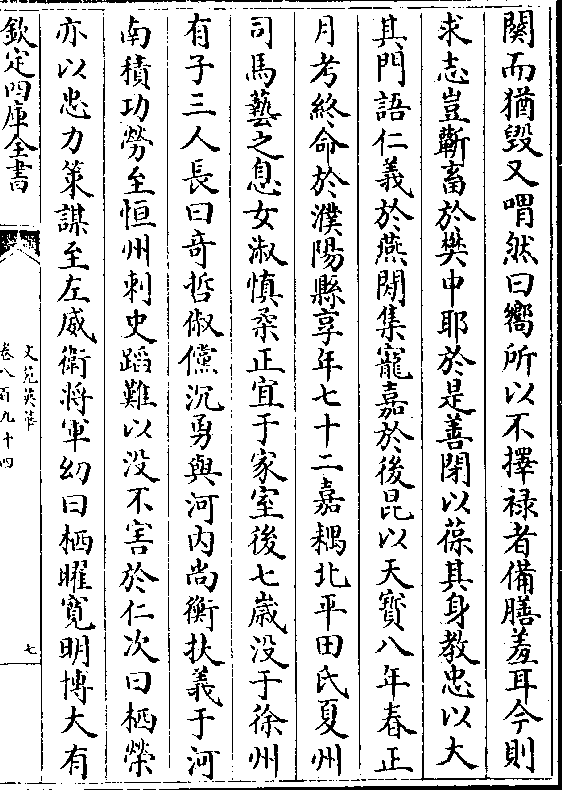 闋而猶毁又喟然曰嚮所以不擇禄者備膳羞耳今則
求志豈蘄畜於樊中耶於是善閉以葆其身教忠以大
其門語仁義於燕閒集寵嘉於後昆以天寳八年春正
月考終命於濮陽縣享年七十二嘉耦北平田氏夏州
司馬藝之息女淑慎柔正宜于家室後七歳没于徐州
有子三人長曰竒哲俶儻沉勇與河内尚衡扶義于河
南積功勞至恒州刺史蹈難以没不害於仁次曰栖榮
亦以忠力策謀至左威衛將軍幼曰栖曜寛明博大有
欽定四庫全書
文苑英華
卷八百九十四
七